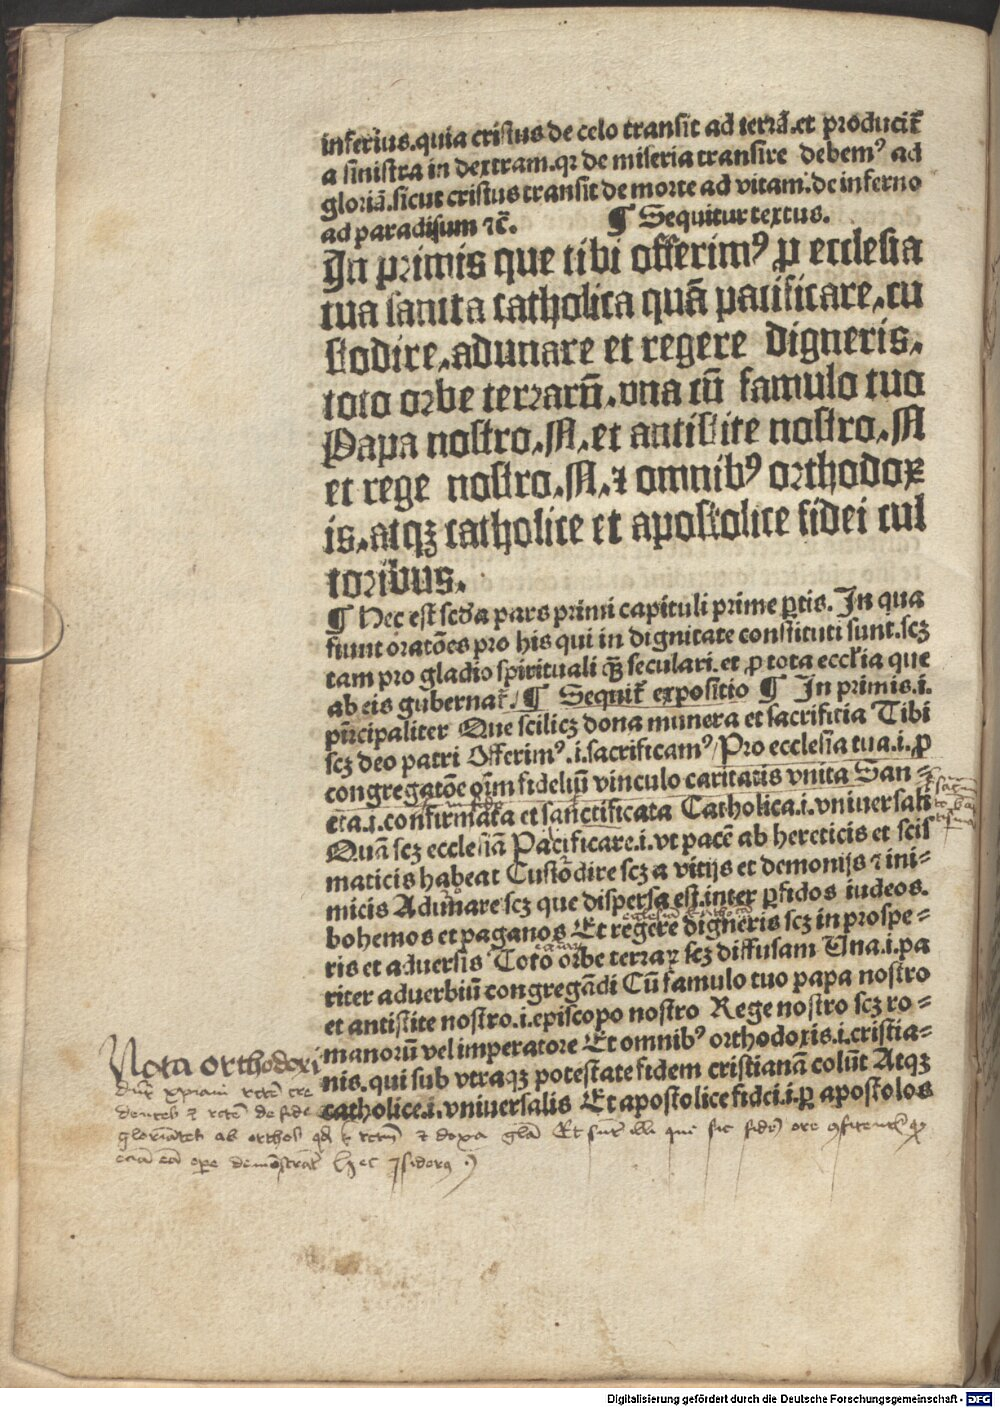 inferius.quia cristus de celo transit ad terrā.et producit̄
a sinistra in dextram.qꝛ de miseria transire debemꝰ ad
gloriā.sicut cristus transit de morte ad vitam.de inferno
ad paradisum ⁊c̄. ¶ Sequitur textus.
In primis que tibi offerimꝰ ꝓ ecclesia
tua sancta catholica quā pacificare,cu
stodire,adunare et regere digneris,
toto orbe terrarū,vna cū famulo tuo
Papa nostro,N,et antistite nostro,N
et rege nostro,N,⁊ omnibꝰ orthodox
is,atqꝫ catholice et apostolice fidei cul
toribus,
¶ Hec est scďa pars primi capituli prime ꝑtis. In qua
fiunt oratōes pro his qui in dignitate constituti sunt.scꝫ
tam pro gladio spirituali qꝫ̄ seculari.et ꝓ tota eccl'ia que
ab eis gubernat̄./ ¶ Sequit̄ expositio ¶ In primis.i.
prīcipaliter Que scilicꝫ dona munera et sacrificia Tibi
scꝫ deo patri Offerimꝰ.i.sacrificamꝰ/Pro ecclesia tua.i.ꝓ
congregatōe oīm fideliū vinculo caritatis vnita San-
cta.i.confirmata et sanctificata Catholica.i.vniuersali
Quā scꝫ ecclesiā Pacificare.i.vt pacē ab hereticis et scis
maticis habeat Custodire scꝫ a vitijs et demonijs ⁊ ini-
micis Adunare scꝫ que dispersa est.inter ꝑfidos iudeos.
bohemos et paganos Et regere digneris scꝫ in prospe-
ris et aduersis Toto orbe terraꝝ scꝫ diffusam Vna.i.pa
riter aduerbiū congregādi Cū famulo tuo papa nostro
et antistite nostro.i.episcopo nostro Rege nostro scꝫ ro-
manorū vel imperatore Et omnibꝰ orthodoxis.i.cristia-
nis.qui sub vtraqꝫ potestate fidem cristianā colūt Atqꝫ
catholice.i.vniuersalis Et apostolice fidei.i.ꝑ apostolos
Nota orthodoxi
dentes ⁊ de fide
ab orthos ⁊ doxa Et